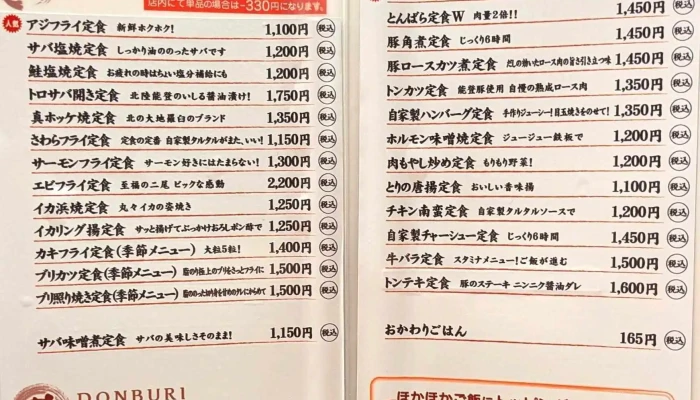 店内にて単品の場合は-330円になります。
人気 アジフライ定食 新鮮ホクホク! 1,100円 税込
サバ塩焼定食 しっかり油ののったサバです 1,200円 税込
鮭塩焼定食 お疲れの時はちょい塩分補給にも 1,200円 税込
トロサバ開き定食 北陸能登のいしる醤油漬け! 1,750円 税込
真ホッケ焼定食 北の大地羅臼のブランド 1,350円 税込
さわらフライ定食 定食の定番 自家製タルタルがまた、いい! 1,150円 税込
サーモンフライ定食 サーモン好きにはたまらない! 1,300円 税込
エビフライ定食 至福の二尾 ビックな感動 2,200円 税込
イカ浜焼定食 丸々イカの姿焼き 1,250円 税込
イカリング揚定食 サッと揚げてぶっかけおろしポン酢で 1,250円 税込
カキフライ定食(季節メニュー) 大粒5粒! 1,400円 税込
ブリカツ定食(季節メニュー) 脂のり極上のブリをさっとフライに 1,500円 税込
ブリ照り焼き定食(季節メニュー) 脂ののった切り身を甘めのタレにからめて 1,500円 税込
サバ味噌煮定食 サバの美味しさそのまま! 1,150円 税込
DONBURI
1,450円 税込
とんばら定食W 肉量2倍!! 1,450円 税込
豚角煮定食 じっくり6時間 1,450円 税込
豚ロースカツ煮定食 だしの効いたロース肉の旨さ引き立つ味 1,450円 税込
トンカツ定食 能登豚使用 自慢の熟成ロース肉 1,350円 税込
自家製ハンバーグ定食 手作りジューシー!目玉焼きをのせて! 1,350円 税込
ホルモン味噌焼定食 ジュージュー鉄板で 1,200円 税込
肉もやし炒め定食 もりもり野菜! 1,200円 税込
とりの唐揚定食 おいしい香味揚 1,100円 税込
チキン南蛮定食 自家製タルタルソースで 1,200円 税込
自家製チャーシュー定食 じっくり6時間 1,450円 税込
牛バラ定食 スタミナメニュー!ご飯が進む 1,500円 税込
トンテキ定食 豚のステーキ ニンニク醤油ダレ 1,600円 税込
おかわりごはん 165円 税込
ほかほかご飯に